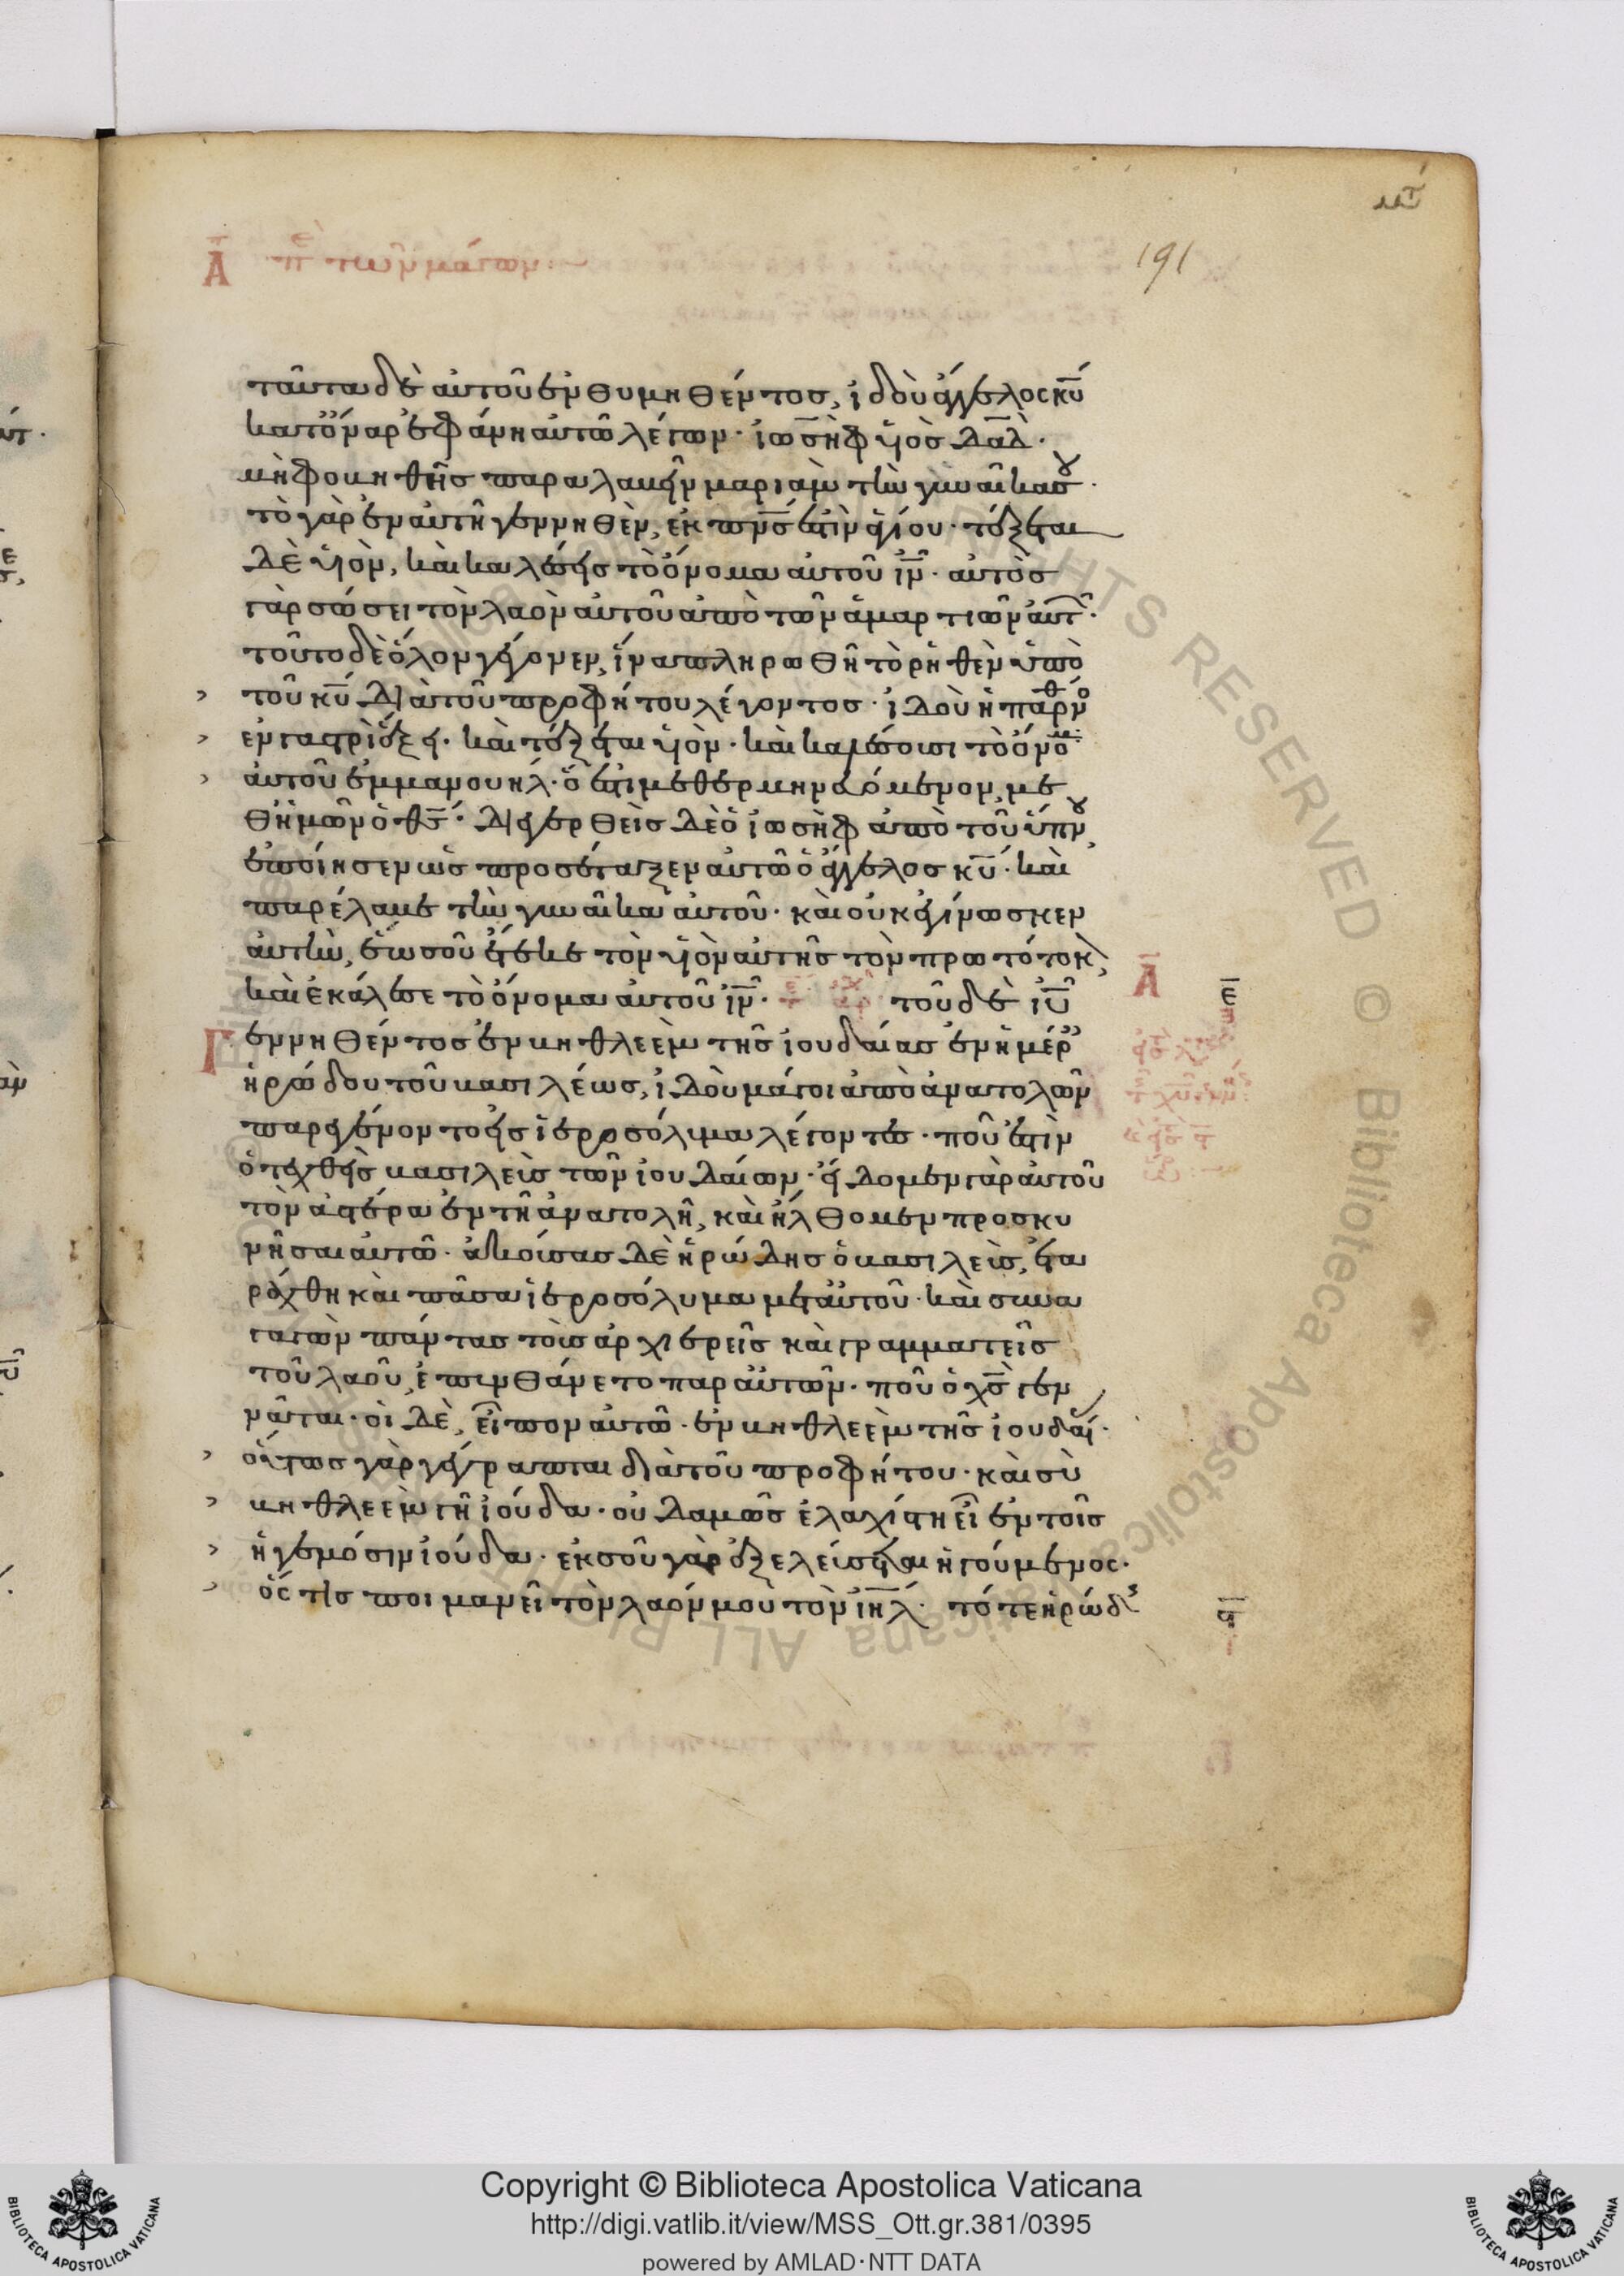 Α περὶ τῶν μάγων
191
ταῦτα δὲ αὐτοῦ ἐνθυμηθέντος, ἰδοὺ ἄγγελος κ̅υ̅
κατ' ὄναρ ἐφάνη αὐτῶ λέγων· ἰωσὴφ υἱὸς δα̅δ·
μὴ φοβηθῆς παραλαβεῖν μαριὰμ τὴν γυναῖκα σου·
τὸ γὰρ ἐν αὐτῆ γεννηθὲν, ἐκ πν̅σ ἐστὶν ἁγίου· τέξεται
δὲ υἱὸν, καὶ καλέσεις τὸ ὄνομα αὐτοῦ ι̅ν̅· αὐτὸς
γὰρ σώσει τὸν λαὸν αὐτοῦ ἀπὸ τῶν ἁμαρτιῶν αὐτ·
τοῦτο δὲ ὅλον γέγονεν, ἵνα πληρωθῆ τὸ ρηθὲν ὑπὸ
τοῦ κ̅υ̅ διὰ τοῦ προφήτου λέγοντος· ἰδοὺ ἡ παρθένο
ἐν γαστρὶ ἕξει· καὶ τέξεται υἱὸν· καὶ καλέσουσι τὸ ὄνομ
αὐτοῦ ἐμμανουήλ· ὅ ἐστι μεθερμηνευόμενον, με
θ' ἡμῶν ὁ θ̅σ̅· διεγερθεὶς δὲ ὁ ἰωσὴφ ἀπὸ τοῦ ὕπνου
ἐποίησεν ὡς προσέταξεν αὐτῶ ὁ ἄγγελος κ̅υ̅· καὶ
παρέλαβε τὴν γυναῖκα αὐτοῦ· καὶ οὐκ ἐγίνωσκεν
αὐτὴν, ἕως οὗ ἔτεκε τὸν υἱὸν αὐτῆς τὸν πρωτότοκ,
καὶ ἐκάλεσε τὸ ὄνομα αὐτοῦ ι̅ν̅· τοῦ δὲ ι̅υ̅
Α
Γεννηθέντος ἐν βηθλεὲμ τῆς ἰουδαίας ἐν ἡμέρ
ἡρώδου τοῦ βασιλέως, ἰδοὺ μάγοι ἀπὸ ἀνατολῶν
παρεγένοντο εἰς ἱεροσόλυμα λέγοντες· ποῦ ἐστὶν
ὁ τεχθεὶς βασιλεὺς τῶν ἰουδαίων· εἴδομεν γὰρ αὐτοῦ
τὸν ἀστέρα ἐν τῆ ἀνατολῆ, καὶ ἤλθομεν προσκυ
νῆσαι αὐτῶ· ἀκούσας δὲ ἡρώδης ὁ βασιλεὺς, ἐτα
ράχθη καὶ πᾶσα ἱεροσόλυμα μετ' αὐτοῦ· καὶ συνα
γαγὼν πάντας τοὺς ἀρχιερεῖς καὶ γραμματεῖς
τοῦ λαοῦ, ἐπυνθάνετο παρ' αὐτῶν· ποῦ ὁ χ̅σ̅ γεν
νᾶται· οἱ δὲ, εἶπον αὐτῶ· ἐν βηθλεὲμ τῆς ἰουδαί·
οὕτως γὰρ γέγραπται διὰ τοῦ προφήτου· καὶ σὺ
βηθλεὲμ γῆ ἰούδα· οὐδαμῶς ἐλαχίστη εἶ ἐν τοῖς
ἡγεμόσιν ἰούδα· ἐκ σοῦ γὰρ ἐξελεύσεται ἡγούμενος·
ὅς τις ποιμανεῖ τὸν λαόν μου τὸν ι̅η̅λ̅· τότε ἡρώδ